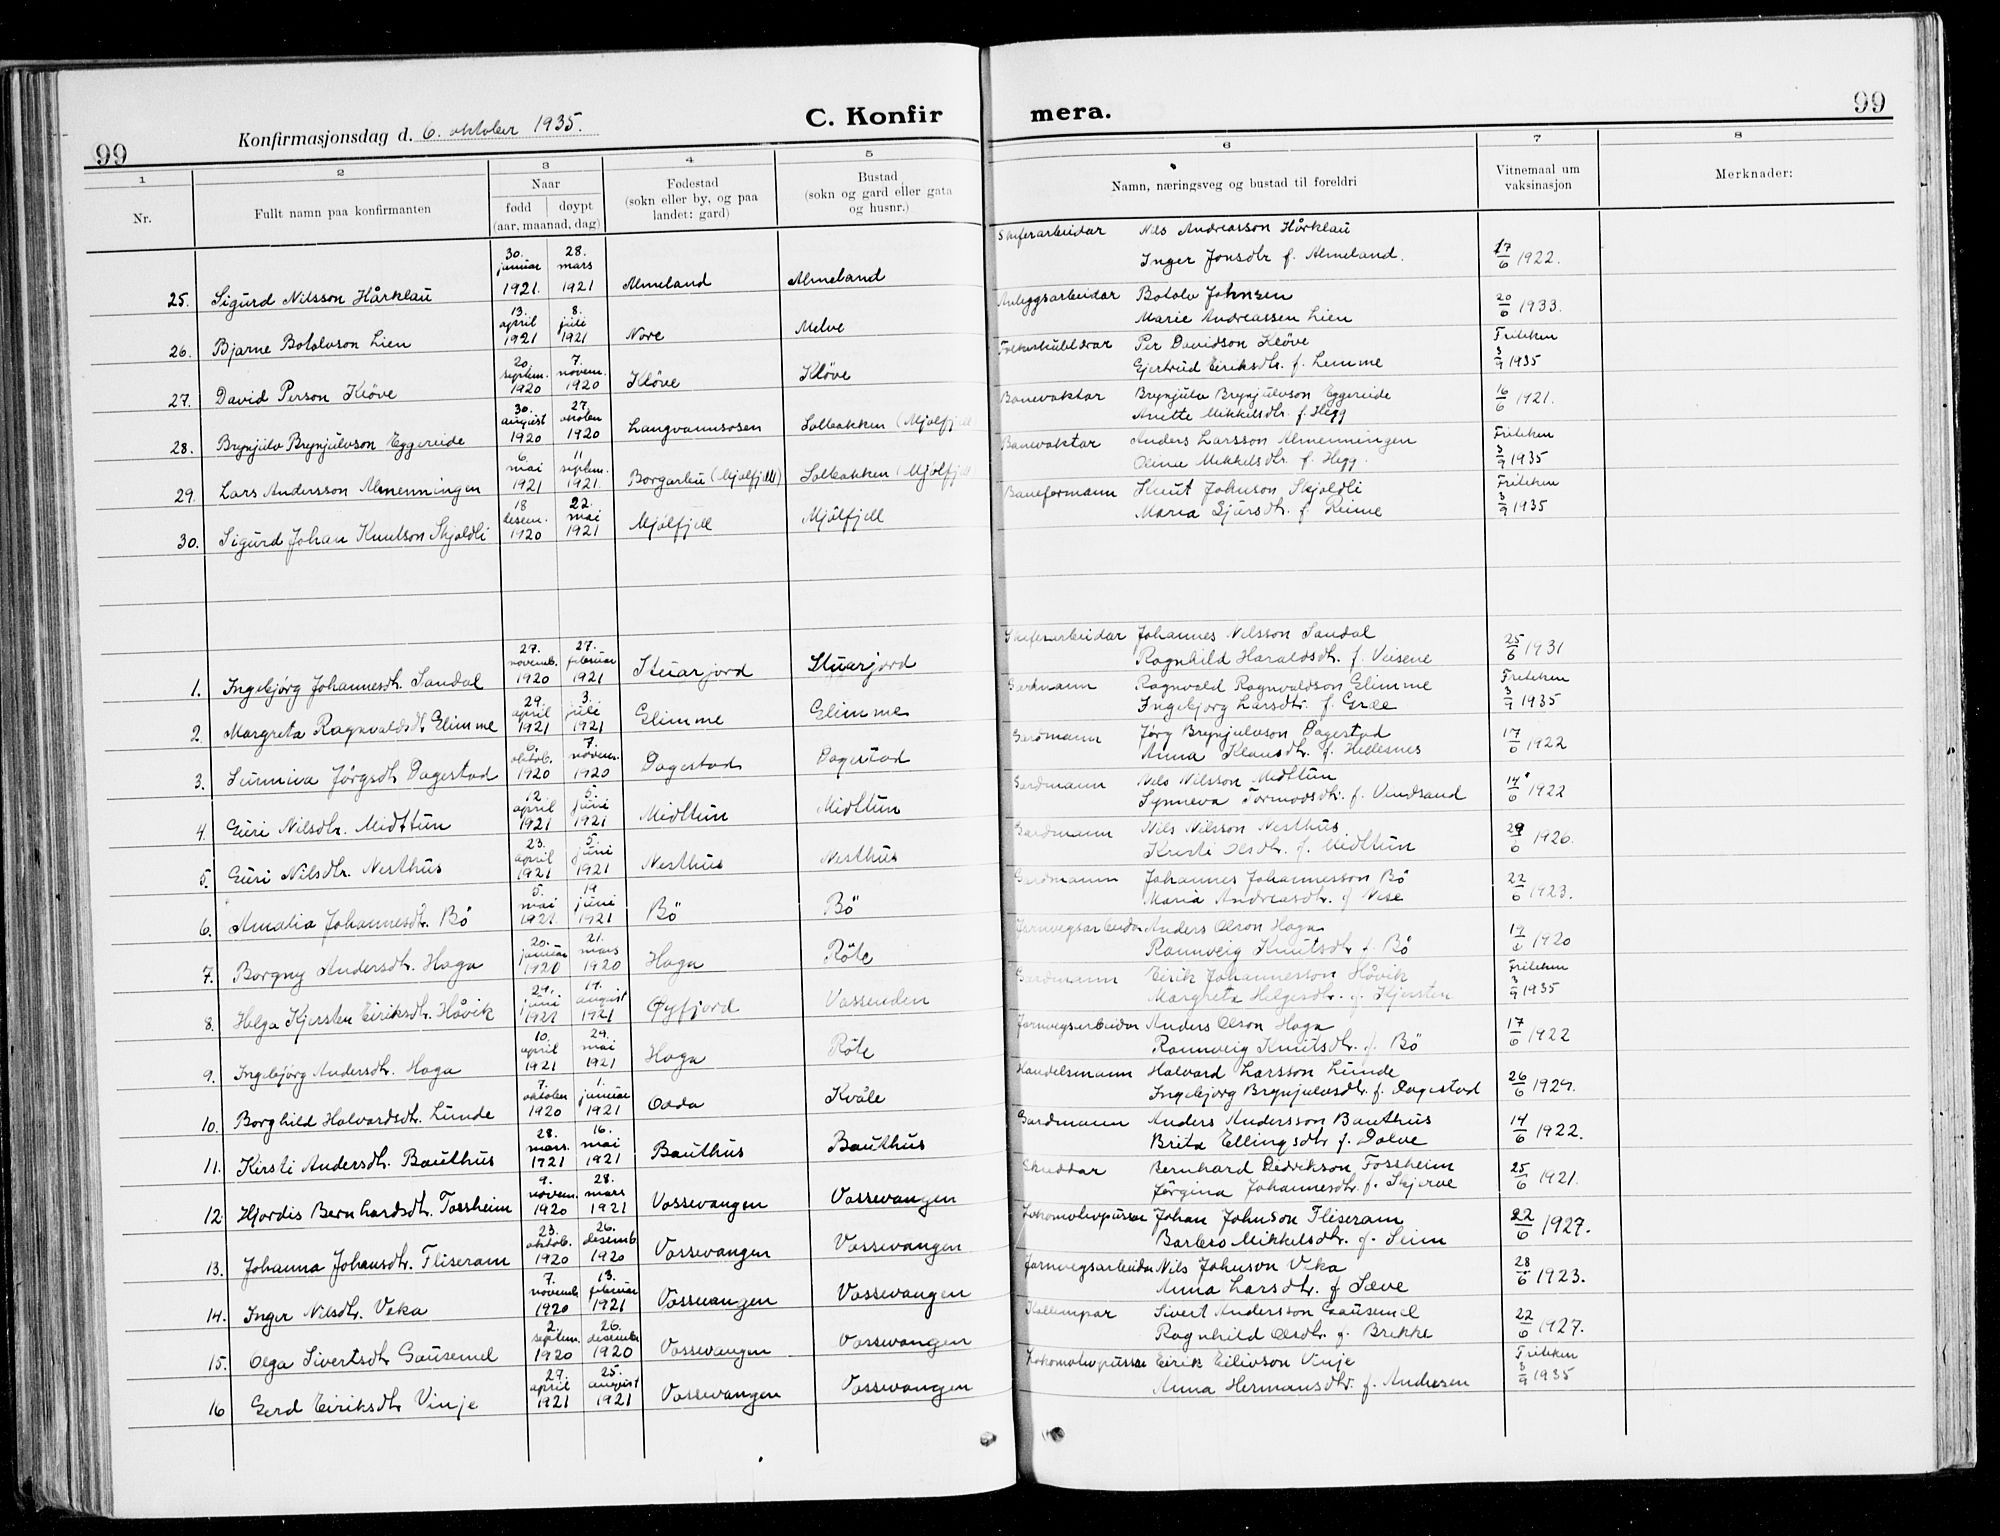 99
Konfirmasjonsdag d. 6. oktober 1935.
C. Konfirmera.
99
1 2 3 4 5 6 7 8
Nr. Fullt namn paa konfirmanten Naar fødd døypt (aar, maanad, dag) Fødestad (sokn eller by, og paa landet: gard) Bustad (sokn og gard eller gata og husnr.) Namn, næringsveg og bustad til foreldri Vitnemaal um vaksinasjon Merknader:
25. Sigurd Nilsson Hårklau 30. januar 1921. 28. mars 1921 Almeland Almeland Skiferarbeidar Nils Andreasson Hårklau
Inger Jonsdtr f. Almeland. 17/6 1922.
26. Bjarne Botolvson Lien 13. april 1921 8. juli 1921 Nore Melve Anleggsarbeidar Botolv Johnsen
Marie Andreassen Lien 20/6 1933.
27. David Person Kløve 20. septem. 1920 7. novem. 1920 Kløve Kløve Per Davidson Kløve
Gjertrud Eiriksdtr. f. Lemme Friteken 3/9 1935
28. Brynjulv Brynjulvson Eggereide 30. august 1920 27. oktober 1920 Langvannsosen Solbakken (Mjølfjell Banevaktar Brynjulv Brynjulvson Eggereide
Anette Mikkelsdtr. f. Hegg 16/6 1921.
29. Lars Andersson Almenningen 6. mai 1921 11 septem. 1921. Borgarleu (Mjølfjell) Solbakken (Mjølfjell Banevaktar Anders Larsson Almenningen
Oline Mikkelsdtr. f. Hegg. Friteken 3/9 1935
30. Sigurd Johan Knutson Skjoldli 18 desem. 1920 22. mai 1921 Mjølfjell Mjølfjell Baneformann Knut Johnson Skjoldli
Maria Sjursdtr. f. Reime Friteken 3/9 1935
1. Ingebjørg Johannesdtr. Sandal 27. novemb. 1920 27. februar 1921 Stuarjord Stuarjord Skiferarbeidar Johannes Nilsson Sandal
Ragnhild Haraldsdtr. f. Veisene 25/6 1931
2. Margreta Ragnvaldsdtr Glimme 29. april 1921 3. juli 1921 Glimme Glimme Gardmann Ragnvald Ragnvaldson Glimme
Ingebjorg Larsdtr. f. Græe Friteken 3/9 1935
3. Sunniva Jørgsdtr Dagestad 6. oktob. 1920 7. novem. 1920 Dagestad Dagestad Gardmann Jørg Brynjulvson Dagestad
Anna Klausdtr. f. Hellesnes 17/6 1922
4. Guri Nilsdtr. Midttun 12. april 1921 5. juni 1921 Midttun Midttun Gardmann Nils Nilsson Midttun
Synneva Tormodsdtr. f. Vindsand 14/6 1922
5. Guri Nilsdtr. Nesthus 23. april 1921 5. juni 1921 Nesthus Nesthus Gardmann Nils Nilsson Nesthus.
Kristi Olsdtr. f. Midttun 29/6 1926.
6. Amalia Johannesdtr. Bö 5. mai 1921. 19 juni 1921 Bö Bö Gardmann Johannes Johannesson Bö
Maria Andreasdtr. f Nese 22/6 1923.
7. Borgny Andersdtr. Haga 20. januar 1920 21. mars 1920 Haga Röte Jarnvegsarbeidar Anders Olson Haga
Rannveig Knutsdtr f. Bö 19/6 1920
8. Helga Kjersten Eiriksdtr. Håvik 29. juni 1921 14. august 1921 Øyfjord Vassenden Gardmann Eirik Johannesson Håvik
Margreta Helgesdtr. f. Kjersten Friteken 3/9 1935
9. Ingebjørg Andersdtr. Haga 10. april 1921 29. mai 1921 Haga Röte Jarnvegsarbeidar Anders Olson Haga
Rannveig Knutsdtr. f. Bö 17/6 1922
10. Borghild Halvardsdtr. Lunde 7. oktober 1920 1. januar 1921 Odda Kvåle Handelsmann Halvard Larsson Lunde
Ingebjørg Brynjulvsdtr. f. Dagestad 26/6 1929.
11. Kirsti Andersdtr. Bauthus 28. mars. 1921 16. mai 1921 Bauthus Bauthus Gardmann Anders Andersson Bauthus
Brita Ellingsdtr f. Dolve 14/6 1922.
12. Hjordis Bernhardsdtr. Fossheim 9. novem. 1920 28. mars 1921 Vossevangen Vossevangen Skreddar Bernhard Didrikson Fossheim
Jørgina Johannesdtr. f. Skjerve 25/6 1921.
13. Johanna Johansdtr. Fliseram 23. oktob. 1920 26. desemb 1920 Vossevangen Vossevangen Lokomotivpussar Johan Johnson Fliseram
Barbro Mikkelsdtr. f. Seim 22/6 1927.
14. Inger Nilsdtr. Veka 7. novemb. 1920 13. februar 1921 Vossevangen Vossevangen Jarnvegsarbeidar Nils Johnson Veka
Anna Larsdtr. f Sæve 28/6 1923.
15. Olga Sivertsdtr Gausemel 2. septem. 1920 26. desembr 1920 Vossevangen Vossevangen Sivert Andersson Gausemel
Ragnhild Olsdtr. f. Brekke 22/6 1927.
16 Gerd Eiriksdtr Vinje 27. april 1921 25. august 1921 Vossevangen Vossevangen Lokomotivpussar Eirik Eilivson Vinje
Anna Hermansdtr. f. Andresen Friteken 3/9 1935